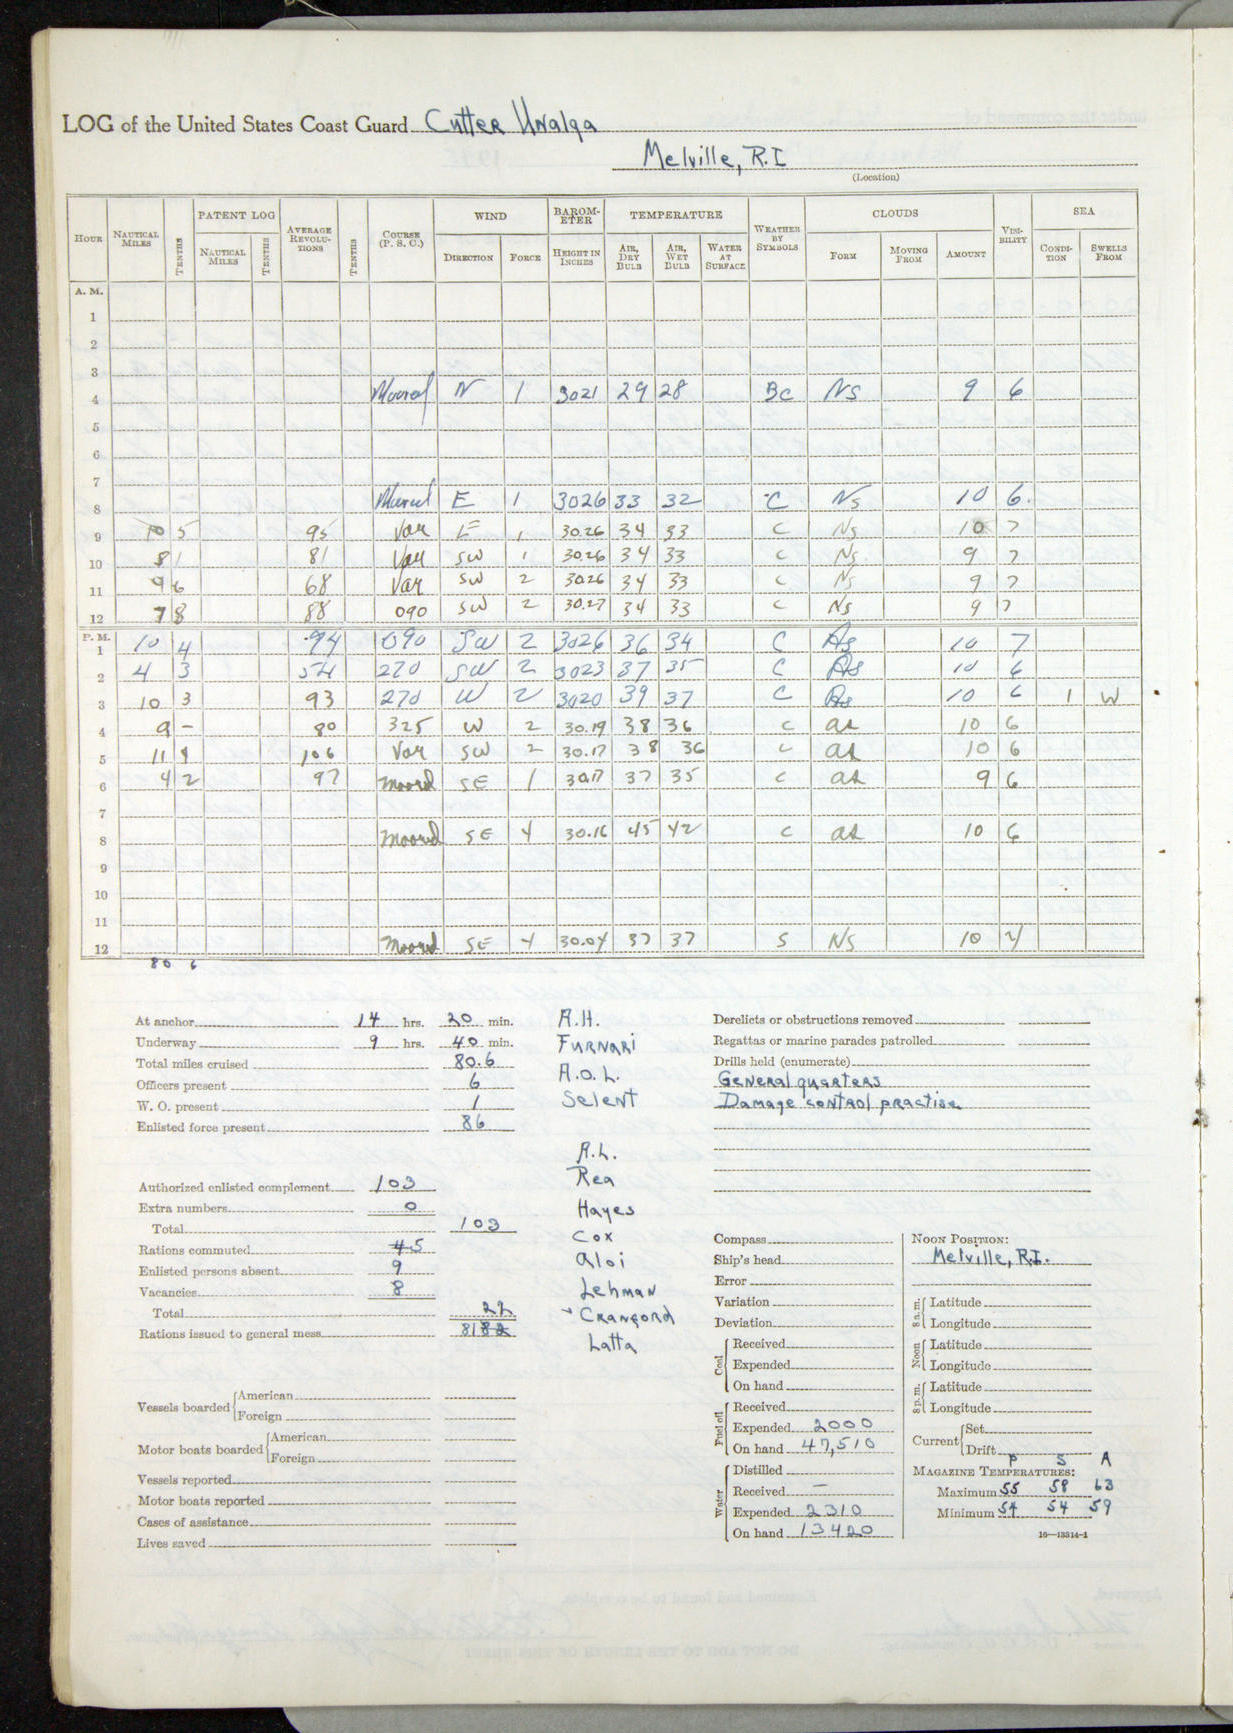 LOG of the United States Coast Guard Cutter Unalga
Melville, R.I
(Location)
HOUR NAUTICAL MILES TENTHS PATENT LOG NAUTICAL MILES TENTHS AVERAGE REVOLUTIONS TENTHS COURSE (P. S. C.) WIND DIRECTION FORCE BAROMETER HEIGHT IN INCHES TEMPERATURE AIR, DRY BULB AIR, WET BULB WATER AT SURFACE WEATHER BY SYMBOLS CLOUDS FORM MOVING FROM AMOUNT VISIBILITY SEA CONDITION SWELLS FROM
A. M.
1
2
3
4 Moored N 1 3021 29 28 Bc Ns 9 6
5
6
7
8 Moored E 1 3026 33 32 C Ns 10 6
9 10 5 95 Var E 1 30.26 34 33 C Ns 10 7
10 8 1 81 Var SW 1 30.26 34 33 C Ns 9 7
11 9 6 68 Var SW 2 30.26 34 33 C Ns 9 7
12 7 8 88 090 SW 2 30.27 34 33 C Ns 9 7
P. M.
1 10 4 94 090 SW 2 3026 36 34 C As 10 7
2 4 3 54 270 SW 2 3023 37 35 C As 10 6
3 10 3 93 270 W 2 3020 39 37 C As 10 6 1 W
4 9 - 80 325 W 2 30.19 38 36 C as 10 6
5 11 Var SW 2 30.17 38 36 C as 10 6
6 4 2 97 moored SE 1 30.17 37 35 C as 9 6
7
8 moored SE 4 30.16 45 42 C as 10 6
9
10
11
12 moored SE 4 30.04 37 37 S NS 10 4
80 6
At anchor 14 hrs. 20 min.
Underway 9 hrs. 40 min.
Total miles cruised 80.6
Officers present 6
W. O. present 1
Enlisted force present 86
Authorized enlisted complement 103
Extra numbers 0
Total 103
Rations commuted 45
Enlisted persons absent 9
Vacancies 8
Total 22
Rations issued to general mess 81 82
Vessels boarded American
Foreign
Motor boats boarded American
Foreign
Vessels reported
Motor boats reported
Cases of assistance
Lives saved
A.H.
Furnari
A.O.L.
Selent
A.L.
Rea
Hayes
Cox
Aloi
Lehman
Cranford
Latta
Derelicts or obstructions removed
Regattas or marine parades patrolled
Drills held (enumerate)
General quarters
Damage control practise
Compass
Ship's head
Error
Variation
Deviation
Coal Received
Expended
On hand
Fuel oil Received
Expended 2000
On hand 47,510
Water Distilled
Received —
Expended 2310
On hand 13420
NOON POSITION:
Melville, R.I.
8 a.m. Latitude
Longitude
Noon Latitude
Longitude
8 p.m. Latitude
Longitude
Current Set
Drift
P S A
MAGAZINE TEMPERATURES:
Maximum 55 58 63
Minimum 54 54 59
16—13314-1